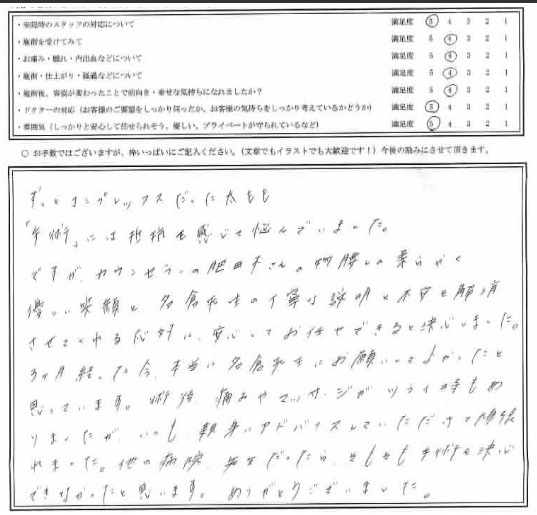 ・来院時のスタッフの対応について 満足度 5 4 3 2 1
・施術を受けてみて 満足度 5 4 3 2 1
・お痛み・腫れ・内出血などについて 満足度 5 4 3 2 1
・施術・仕上がり・経過などについて 満足度 5 4 3 2 1
・施術後、容姿が変わったことで前向き・幸せな気持ちになれましたか? 満足度 5 4 3 2 1
・ドクターの対応(お客様のご要望をしっかり伺ったか。お客様の気持ちをしっかり考えているかどうか) 満足度 5 4 3 2 1
・雰囲気(しっかりと安心して任せられそう、優しい、プライベートが守られているなど) 満足度 5 4 3 2 1
○ お手数ではございますが、枠いっぱいにご記入ください。(文章でもイラストでも大歓迎です!)今後の励みにさせて頂きます。
ずっとコンプレックスだった太もも
「手術」には抵抗も感じて悩んでいました。
ですが、カウンセラーの肥田木さんの物腰の柔らかく
優しい笑顔と名倉先生の丁寧な説明と不安を解消
させてくれる応対に、安心してお任せできると決心しました。
3ヶ月経った今、本当に名倉先生にお願いしてよかったと
思っています。術後、痛みやマッサージがツライ時もあ
りましたが、いつも親身にアドバイスしていただき、頑張
れました。他の病院、先生だったら、そもそも手術を決心
できなかったと思います。ありがとうございました。